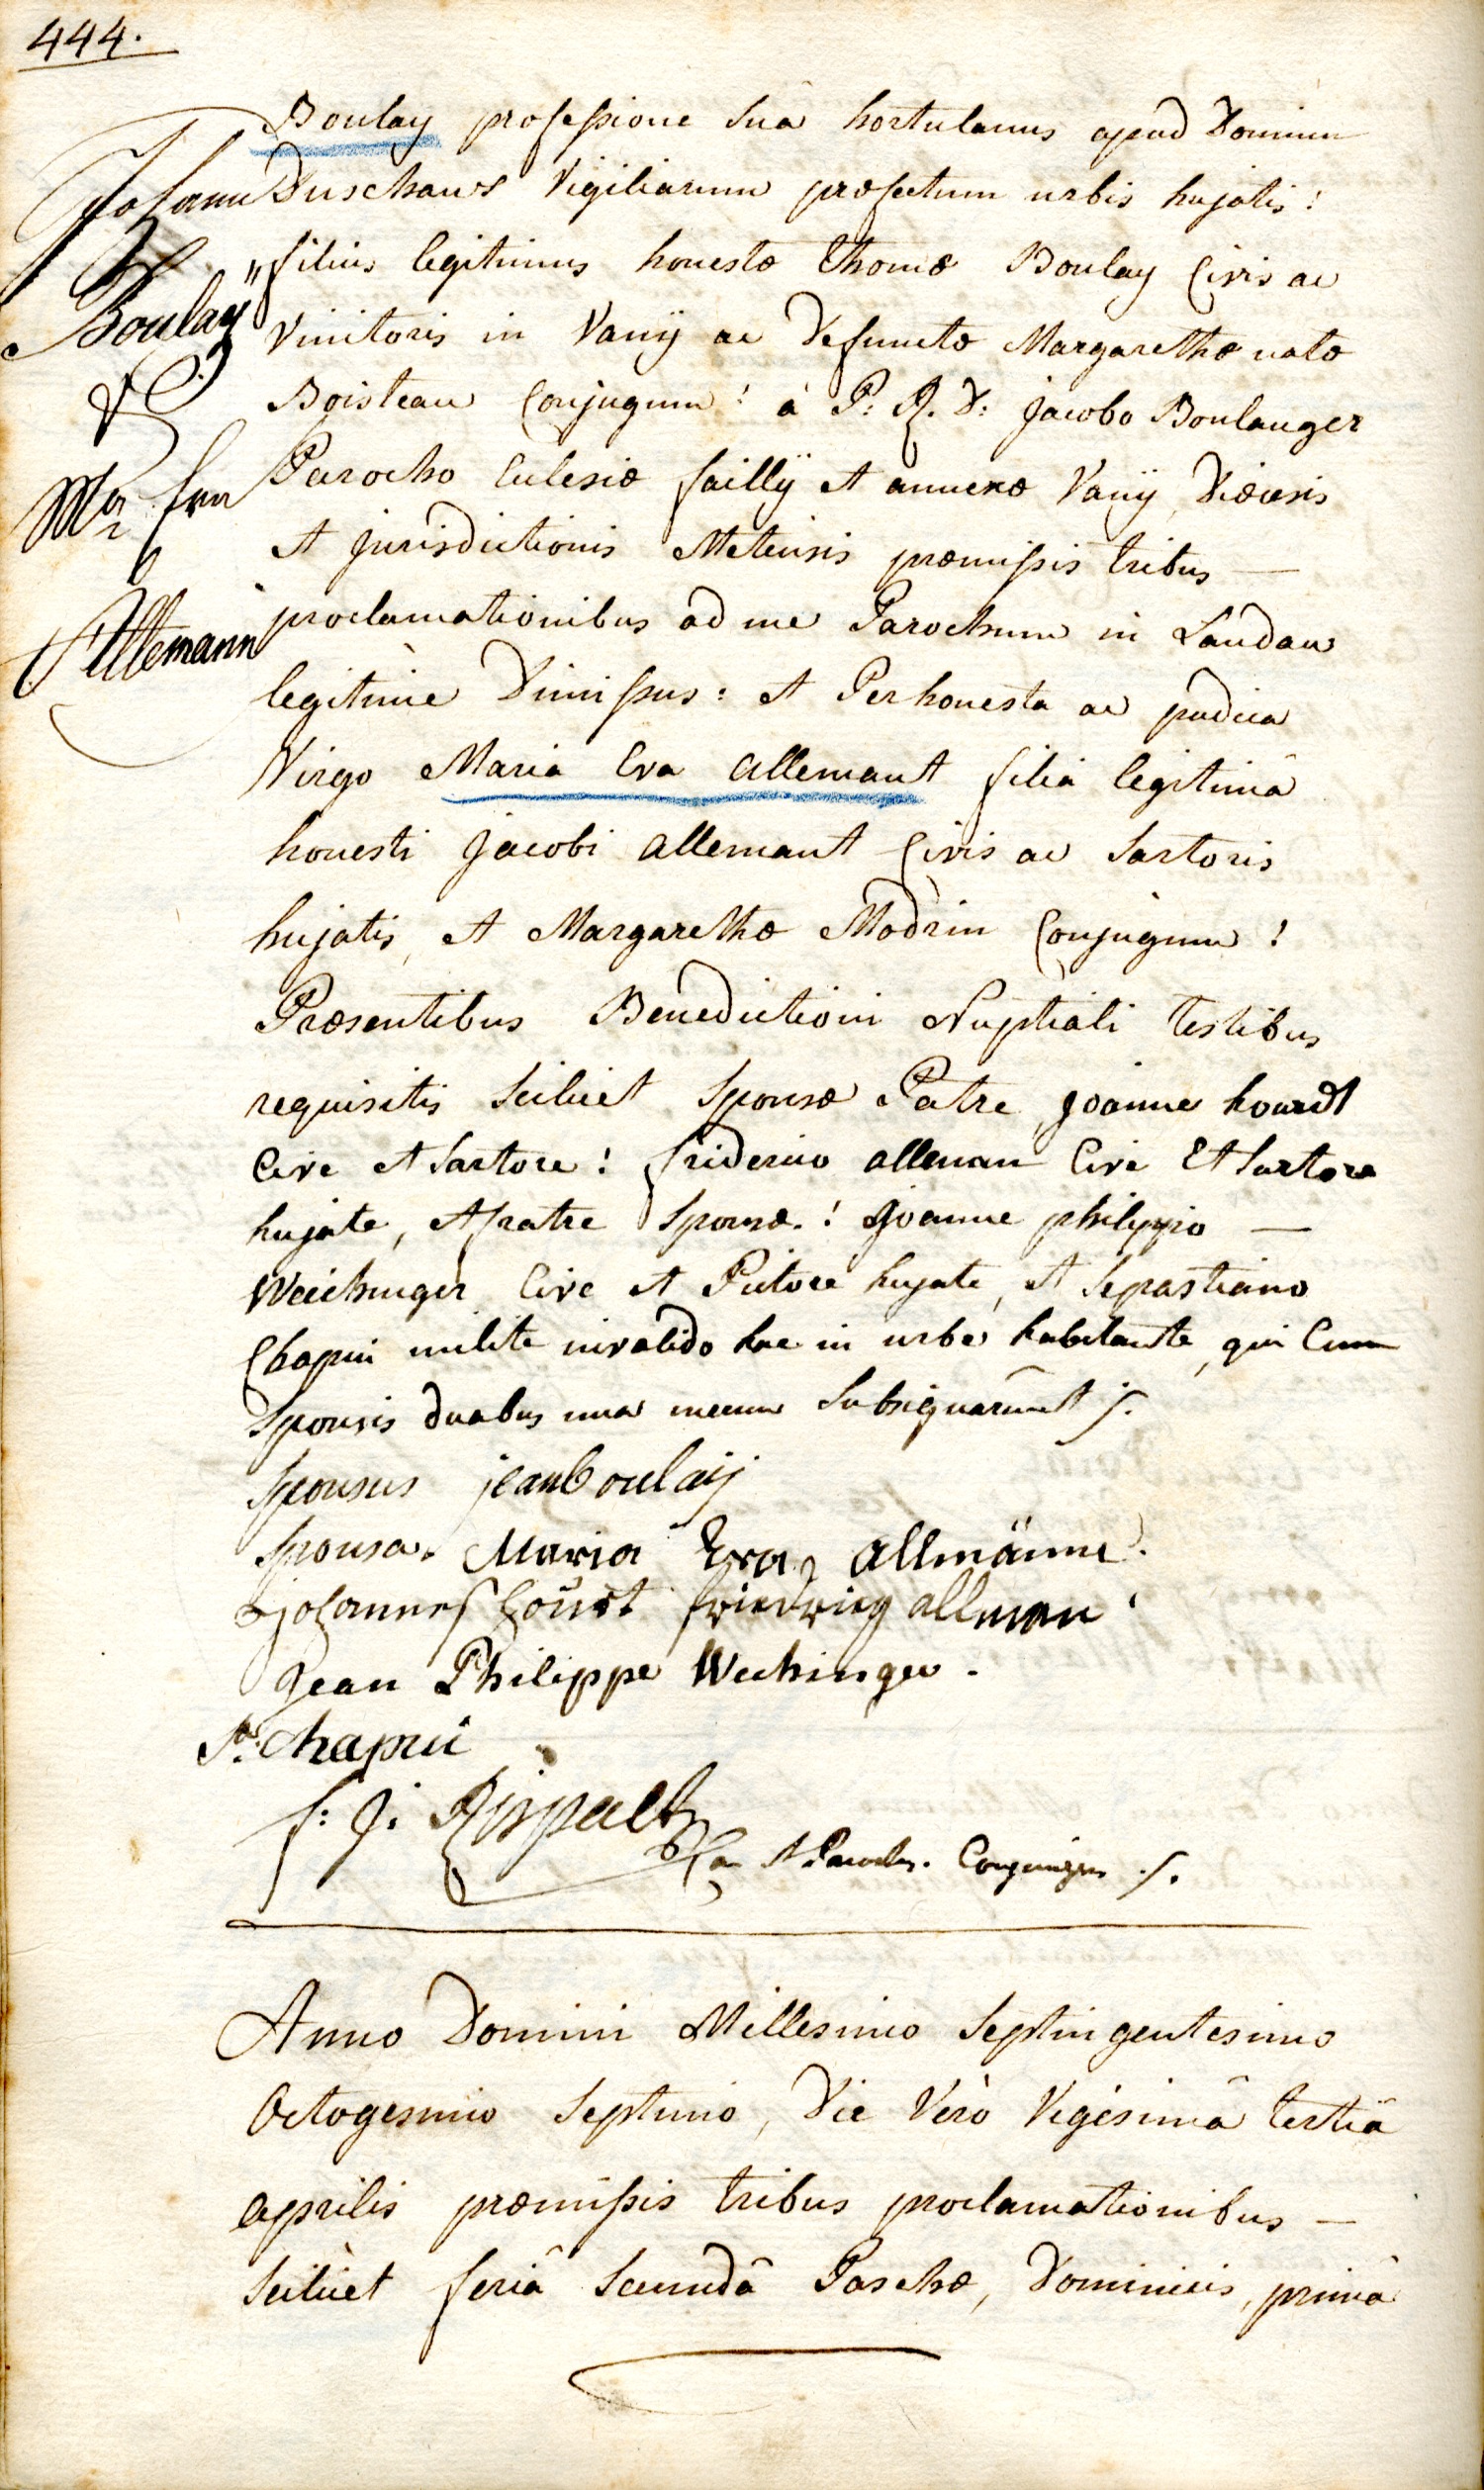 444.
Boulay professione suâ hortulanus apud Dominum
Duschaus Vigiliarum præfectum urbis hujatis!
filius legitimus honestæ thomæ Boulay Civis ac
Vinitoris in Vanÿ ac Defunctæ Margarethæ natæ
Boisteau Conjugum! à P: R. D: Jacobo Boulanger
Parocho Eclesiæ failly et annexæ Vanÿ, Diœcesis
et jurisdictionis Metensis præmissis tribus —
proclamationibus ad me Parochum in Landau
legitime Dimissus: et Perhonesta ac pudica
Virgo Maria Eva allemant filia legitimâ
honesti Jacobi allemant Civis ac Sartoris
hujatis, et Margarethæ Modrin Conjugum!
Præsentibus Benedictioni Nuptiali testibus
requisitis Scilicet Sponsæ Patre, Joanne houardt
Cive et Sartore! friderico alleman Cive Et Sartore
hujate, et fratre Sponsæ.! Joanne philippo —
Weichinger Cive et Pictore hujate, et Sepastiano
Chapui milite invalido hac in urbe habitante, qui Cum
Sponsis duabus una mecum Subsignarunt ./.
Sponsus jean boulaÿ
Sponsa. Maria Eva allmänne.
Johannes friedrieg allman
Jean Philippe Wechinger.
St: Chapui
f: J: Parochus.
Johann
Boulay
&
Ma Eva
Allemann
Anno Domini Millesimo Septingentesimo
Octogesimo Septimo, Die Verò Vigésimâ tertiâ
aprilis præmissis tribus proclamationibus —
Scilicet feriâ Secundâ Paschæ, Dominicis, primâ